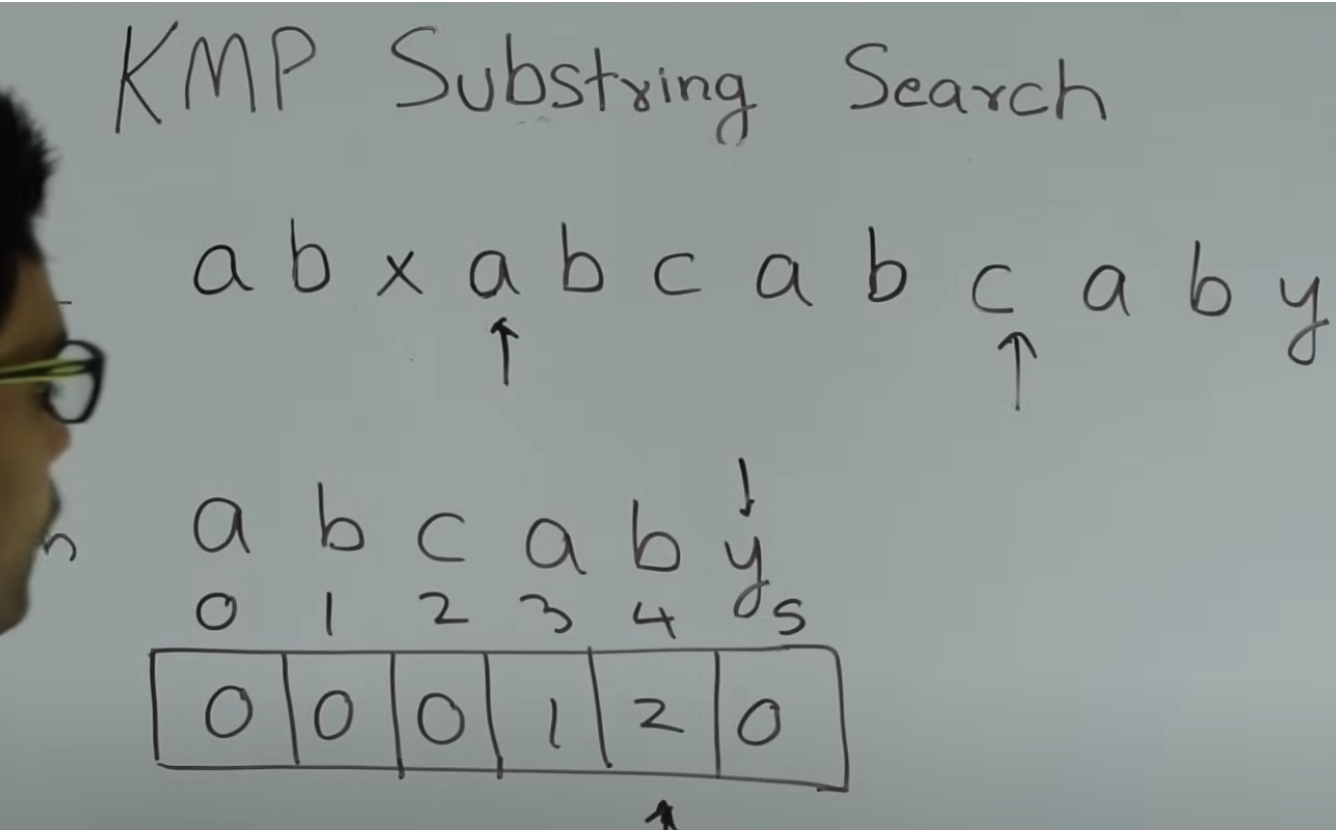 KMP Substring Search
a b x a b c a b c a b y
a b c a b y
0 1 2 3 4 5
0 0 0 1 2 0